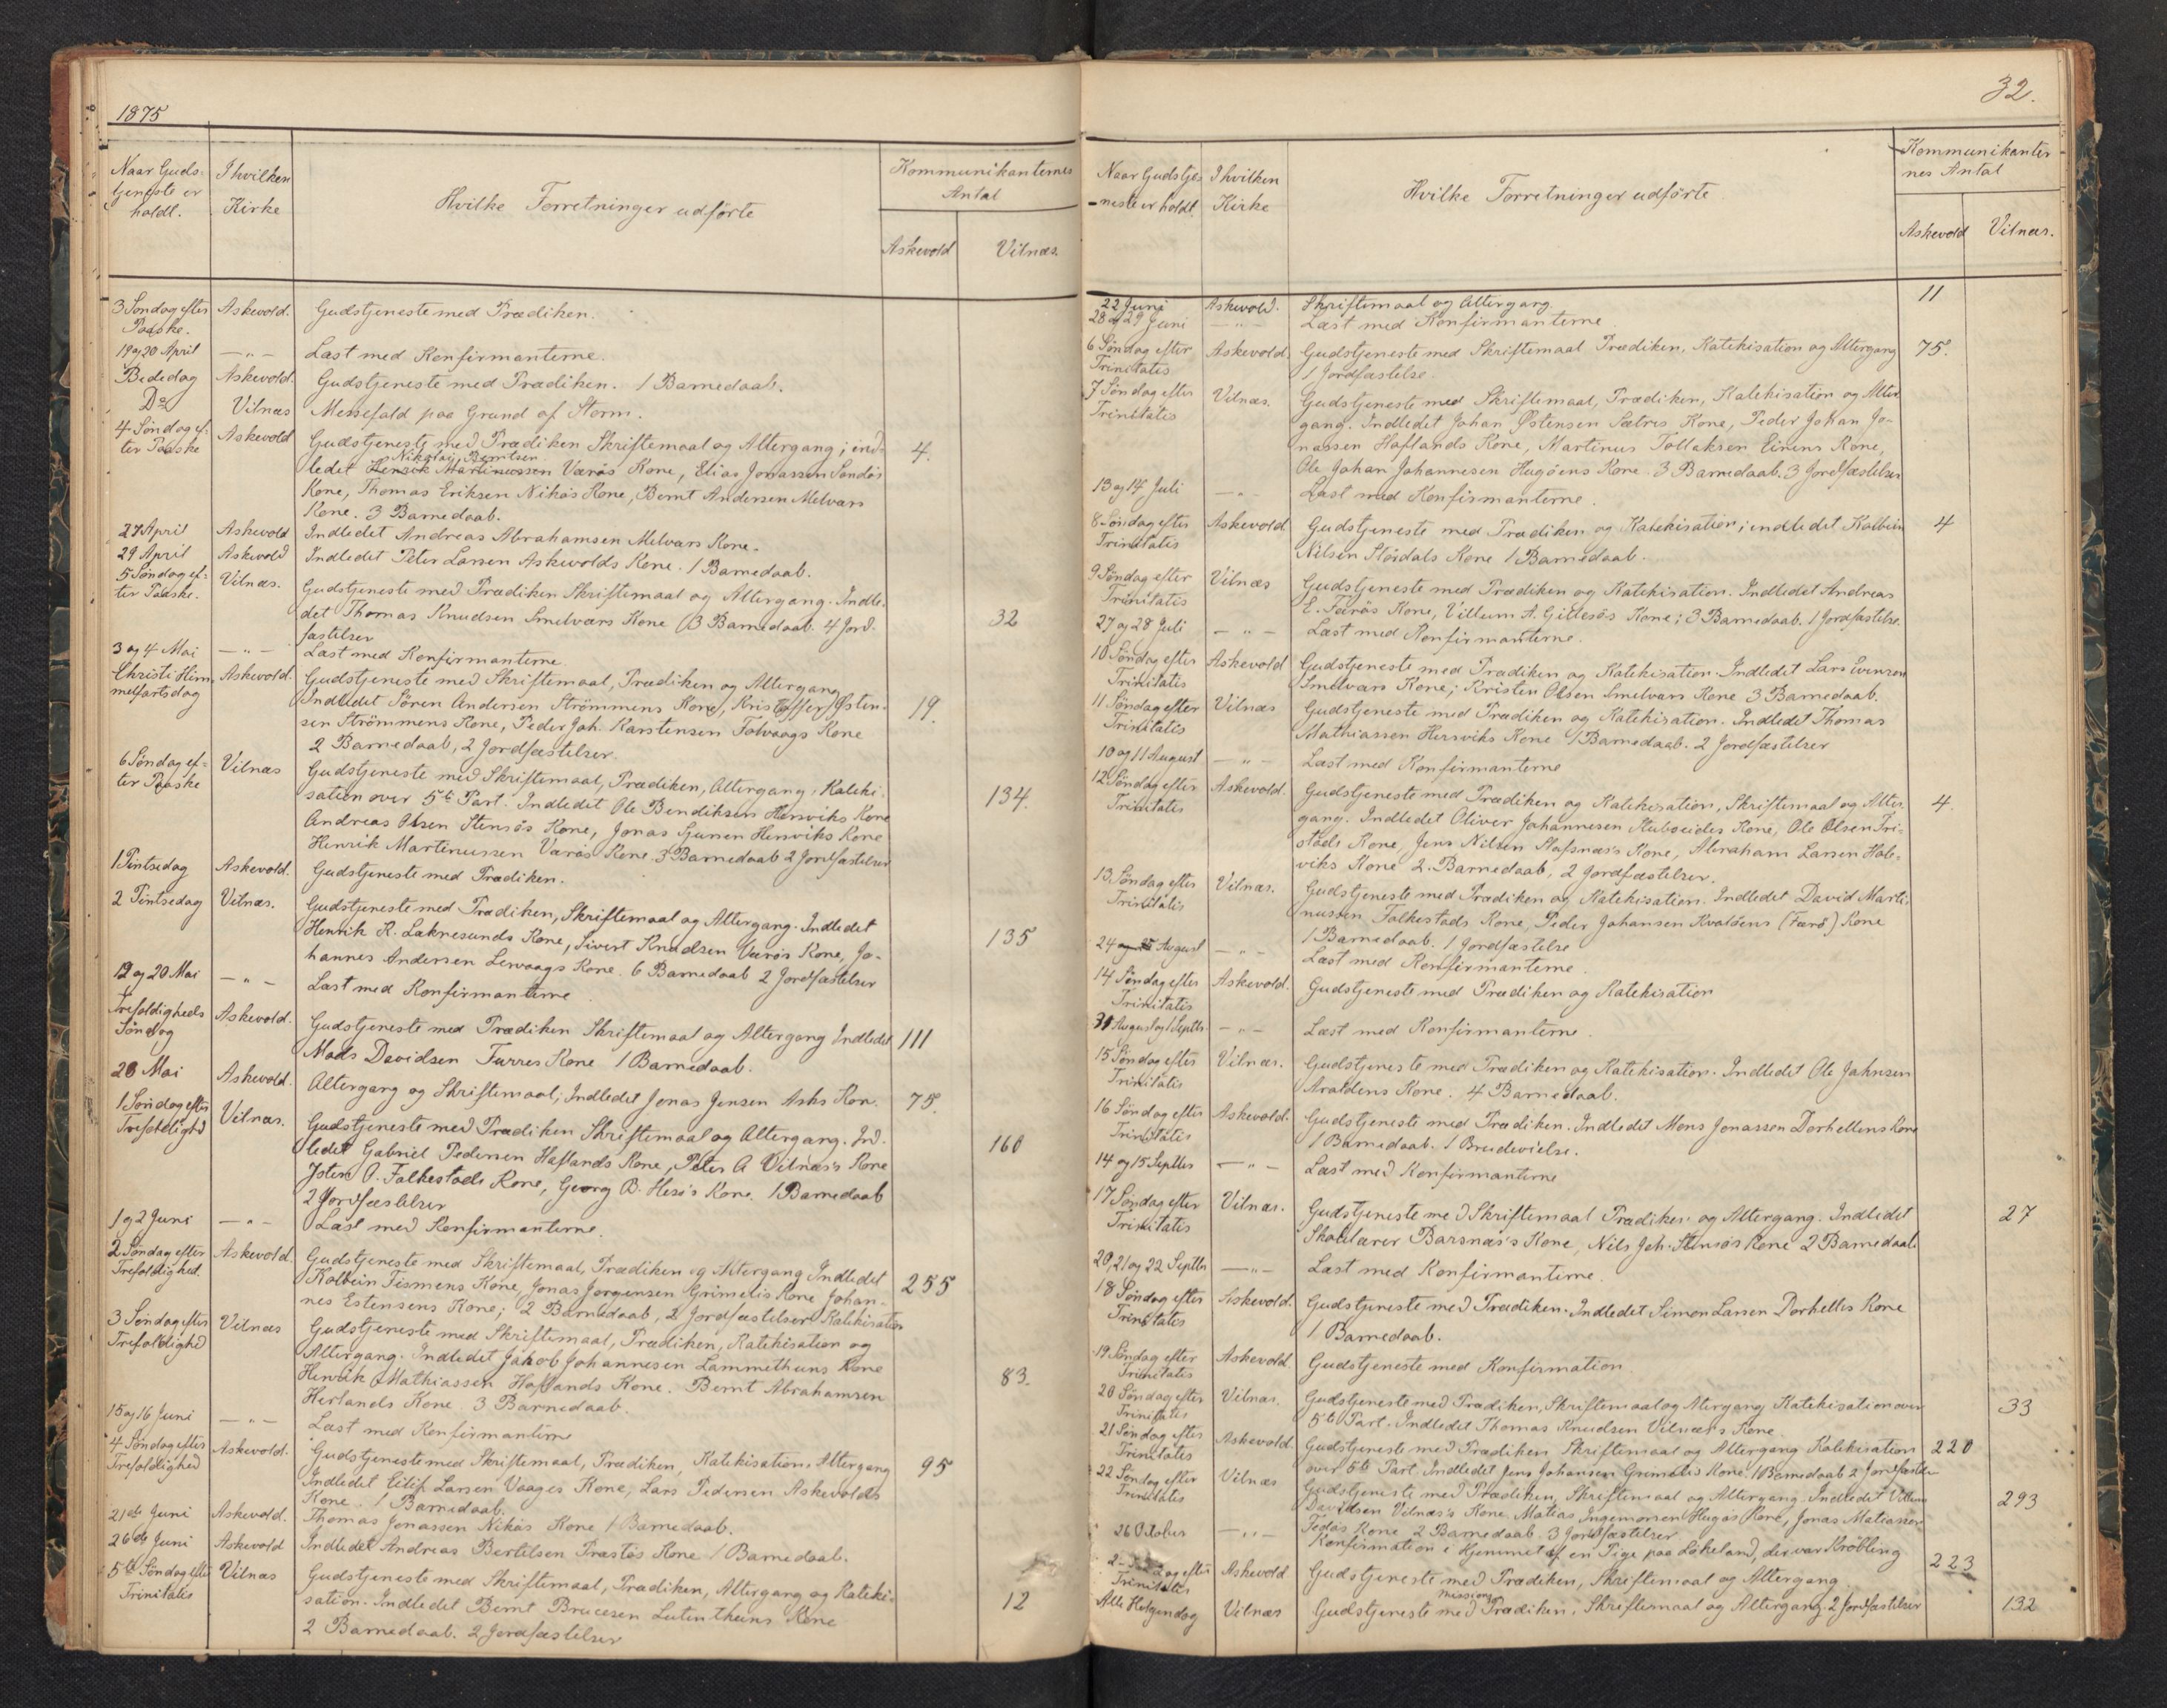 1875
Naar Guds-
tjeneste er
holdt.
I hvilken
Kirke
Hvilke Forretninger udførte
Kommunikanternes
Antal
Askevold
Vilnæs.
3 Søndag efter Askevold. Gudstjeneste med Prædiken.
Paaske.
19 og 20 April — " — Læst med Konfirmanterne.
Bededag Askevold. Gudstjeneste med Prædiken. 1 Barnedaab.
Do Vilnæs Messefald paa Grund af Storm.
4 Søndag ef- Askevold Gudstjeneste med Prædiken Skriftemaal og Altergang; ind- 4.
ter Paaske Nikolai Berntsen
ledet Henrik Martinussen Værøs Kone, Elias Jonassen Sandøs
Kone, Thomas Eriksen Nikøs Kone, Bernt Andersen Melværs
Kone. 3 Barnedaab.
27 April Askevold Indledet Andreas Abrahamsen Melværs Kone.
29 April Askevold Indledet Peter Larsen Askevolds Kone. 1 Barnedaab.
5 Søndag ef- Vilnæs. Gudstjeneste med Prædiken Skriftemaal og Altergang. Indle-
ter Paaske. det Thomas Knudsen Smelværs Kone 3 Barnedaab. 4 Jord- 32
fæstelser
3 og 4 Mai — " — Læst med Konfirmanterne
Christi Him- Askevold. Gudstjeneste med Skriftemaal, Prædiken og Altergang
melfartsdag Indledet Sören Andersen Strömmens Kone, Kristoffer Østen- 19.
sen Strömmens Kone, Peder Joh. Karstensen Folvaags Kone
2 Barnedaab, 2 Jordfæstelser.
6 Søndag ef- Vilnæs Gudstjeneste med Skriftemaal, Prædiken, Altergang, Kateki-
ter Paaske sation over 5te Part. Indledet Ole Bendiksen Hersviks Kone 134.
Andreas Olsen Stensøs Kone, Jonas Hersviks Kone
Henrik Martinussen Værøs Kone. 3 Barnedaab 2 Jordfæstelser
1 Pintsedag Askevold. Gudstjeneste med Prædiken.
2 Pintsedag Vilnæs. Gudstjeneste med Prædiken, Skriftemaal og Altergang. Indledet
Henrik R. Laknesunds Kone, Sivert Knudsen Værøs Kone, Jo- 135
hannes Andersen Lervaags Kone. 6 Barnedaab 2 Jordfæstelser
19 og 20 Mai — " — Læst med Konfirmanterne
Trefoldigheds Askevold. Gudstjeneste med Prædiken Skriftemaal og Altergang Indledet 111
Søndag Mads Davidsen Furres Kone 1 Barnedaab.
28 Mai Askevold. Altergang og Skriftemaal; Indledet Jonas Jensen Asks Kon. 75.
1 Søndag efter Vilnæs. Gudstjeneste med Prædiken Skriftemaal og Altergang. Ind-
Trefoldighd ledet Gabriel Pedersen Haflands Kone, Peter A Vilnæs's Kone 160
Josten O. Folkestads Kone, Georg B. Herøs Kone. 1 Barnedaab
2 Jordfæstelser
1 og 2 Juni — " — Læst med Konfirmanterne.
2 Søndag efter Askevold. Gudstjeneste med Skriftemaal, Prædiken og Altergang Indledet
Trefoldighed. Kolbein Kone, Jonas Jørgensen Grimelis Kone Johan- 255
nes Estensens Kone; 2 Barnedaab, 2 Jordfæstelser Katekisation
3 Søndag efter Vilnæs Gudstjeneste med Skriftemaal, Prædiken, Katekisation og
Trefoldighd Altergang. Indledet Jakob Johannesen Lammethuns Kone
Henrik Mathiassen Haflands Kone. Bernt Abrahamsen 83.
Herlands Kone 3 Barnedaab.
15 og 16 Juni — " — Læst med Konfirmanterne
4 Søndag efter Askevold. Gudstjeneste med Skriftemaal, Prædiken, Katekisation, Altergang 95
Trefoldighed Indledet Eilif Larsen Vaages Kone, Lars Pedersen Askevolds
Kone. 1 Barnedaab.
21de Juni Askevold. Thomas Jonassen Nikøs Kone 1 Barnedaab.
26de Juni Askevold Indledet Andreas Bertelsen Præstøs Kone 1 Barnedaab.
5te Søndag efter Vilnæs Gudstjeneste med Skriftemaal, Prædiken, Altergang og Kateki-
Trinitatis sation. Indledet Bernt Kone 12
2 Barnedaab. 2 Jordfæstelser
32.
Naar Gudstje-
neste er holdt.
I hvilken
Kirke
Hvilke Forretninger udførte
Kommunikanter
nes Antal
Askevold
Vilnæs.
22 Juni Askevold. Skriftemaal og Altergang. 11
28 og 29 Juni — " — Læst med Konfirmanterne
6 Søndag efter Askevold. Gudstjeneste med Skriftemaal Prædiken, Katekisation og Altergang 75.
Trinitatis 1 Jordfæstelse.
7 Søndag efter Vilnæs. Gudstjeneste med Skriftemaal, Prædiken, Katekisation og Alter
Trinitatis gang. Indledet Johan Østensen Sætres Kone, Peder Johan Jo-
nassen Haflands Kone, Martinus Tollaksen Kone,
Ole Johan Johannesen Hugøens Kone. 3 Barnedaab. 3 Jordfæstelser
13 og 14 Juli — " — Læst med Konfirmanterne.
8 Søndag efter Askevold Gudstjeneste med Prædiken og Katekisation; indledet Kolbein 4
Trinitatis Nilsen Størdals Kone 1 Barnedaab.
9 Søndag efter Vilnæs Gudstjeneste med Prædiken og Katekisation. Indledet Andreas
Trinitatis E. Færøs Kone, Villum A. Gillesøs Kone; 3 Barnedaab. 1 Jordfæstelse.
27 og 28 Juli — " — Læst med Konfirmanterne.
10 Søndag efter Askevold Gudstjeneste med Prædiken og Katekisation. Indledet Lars Evensen
Trinitatis Smelværs Kone; Kristen Olsen Smelvær Kone 3 Barnedaab.
11 Søndag efter Vilnæs Gudstjeneste med Prædiken og Katekisation. Indledet Thomas
Trinitatis Mathiassen Hersviks Kone 1 Barnedaab. 2 Jordfæstelser
10 og 11 August — " — Læst med Konfirmanterne
12 Søndag efter Askevold. Gudstjeneste med Prædiken og Katekisation, Skriftemaal og Alter 4.
Trinitatis gang. Indledet Oliver Johannesen Stubseides Kone, Ole Olsen Tri-
stads Kone, Jens Nilsen Stafsnæs's Kone, Abraham Larsen Hole-
viks Kone 2. Barnedaab, 2 Jordfæstelser.
13 Søndag efter Vilnæs. Gudstjeneste med Prædiken og Katekisation. Indledet David Marti-
Trinitatis nussen Folkestads Kone, Peder Johansen Kvaløens (Færø) Kone
1 Barnedaab. 1 Jordfæstelse
24 og 25 August — " — Læst med Konfirmanterne.
14 Søndag efter Askevold. Gudstjeneste med Prædiken og Katekisation
Trinitatis
31 August og 1 Septbr. — " — Læst med Konfirmanterne.
15 Søndag efter Vilnæs. Gudstjeneste med Prædiken og Katekisation. Indledet Ole Jahnsen
Trinitatis Araldens Kone. 4 Barnedaab.
16 Søndag efter Askevold. Gudstjeneste med Prædiken. Indledet Mons Jonassen Dorhellens Kone
Trinitatis 1 Barnedaab. 1 Brudevielse.
14 og 15 Septbr — " — Læst med Konfirmanterne
17 Søndag efter Vilnæs. Gudstjeneste med Skriftemaal Prædiken og Altergang. Indledet 27
Trinitatis Skolelærer Barsnæs's Kone, Nils Joh. Stensøs Kone 2 Barnedaab
20, 21 og 22 Septbr — " — Læst med Konfirmanterne.
18 Søndag efter Askevold. Gudstjeneste med Prædiken. Indledet Simon Larsen Dorhelles Kone
Trinitatis 1 Barnedaab.
19 Søndag efter Askevold. Gudstjeneste med Konfirmation
Trinitatis
20 Søndag efter Vilnæs. Gudstjeneste med Prædiken, Skriftemaal og Altergang Katekisation over 33
Trinitatis 5te Part. Indledet Thomas Knudsen Vilnæs's Kone
21 Søndag efter Askevold. Gudstjeneste med Prædiken Skriftemaal og Altergang Katekisation 220
Trinitatis over 5te Part. Indledet Jens Johansen Grimelis Kone. 1 Barnedaab 2 Jordfæstelser
22 Søndag efter Vilnæs Gudstjeneste med Prædiken, Skriftemaal og Altergang. Indledet Villum 293
Trinitatis Davidsen Vilnæs's Kone. Matias Ingemorsen Hugøs Kone, Jonas Matiassen
Tedøs Kone 2 Barnedaab. 3 Jordfæstelser
26 October — " — Konfirmation i Hjemmet af en Pige paa Løkeland, der var Krøbling
Søndag efter Askevold Gudstjeneste med Prædiken, Skriftemaal og Altergang 223
Trinitatis
Alle Helgendag Vilnæs Gudstjeneste med missions Prædiken, Skriftemaal og Altergang. 2 Jordfæstelser 132